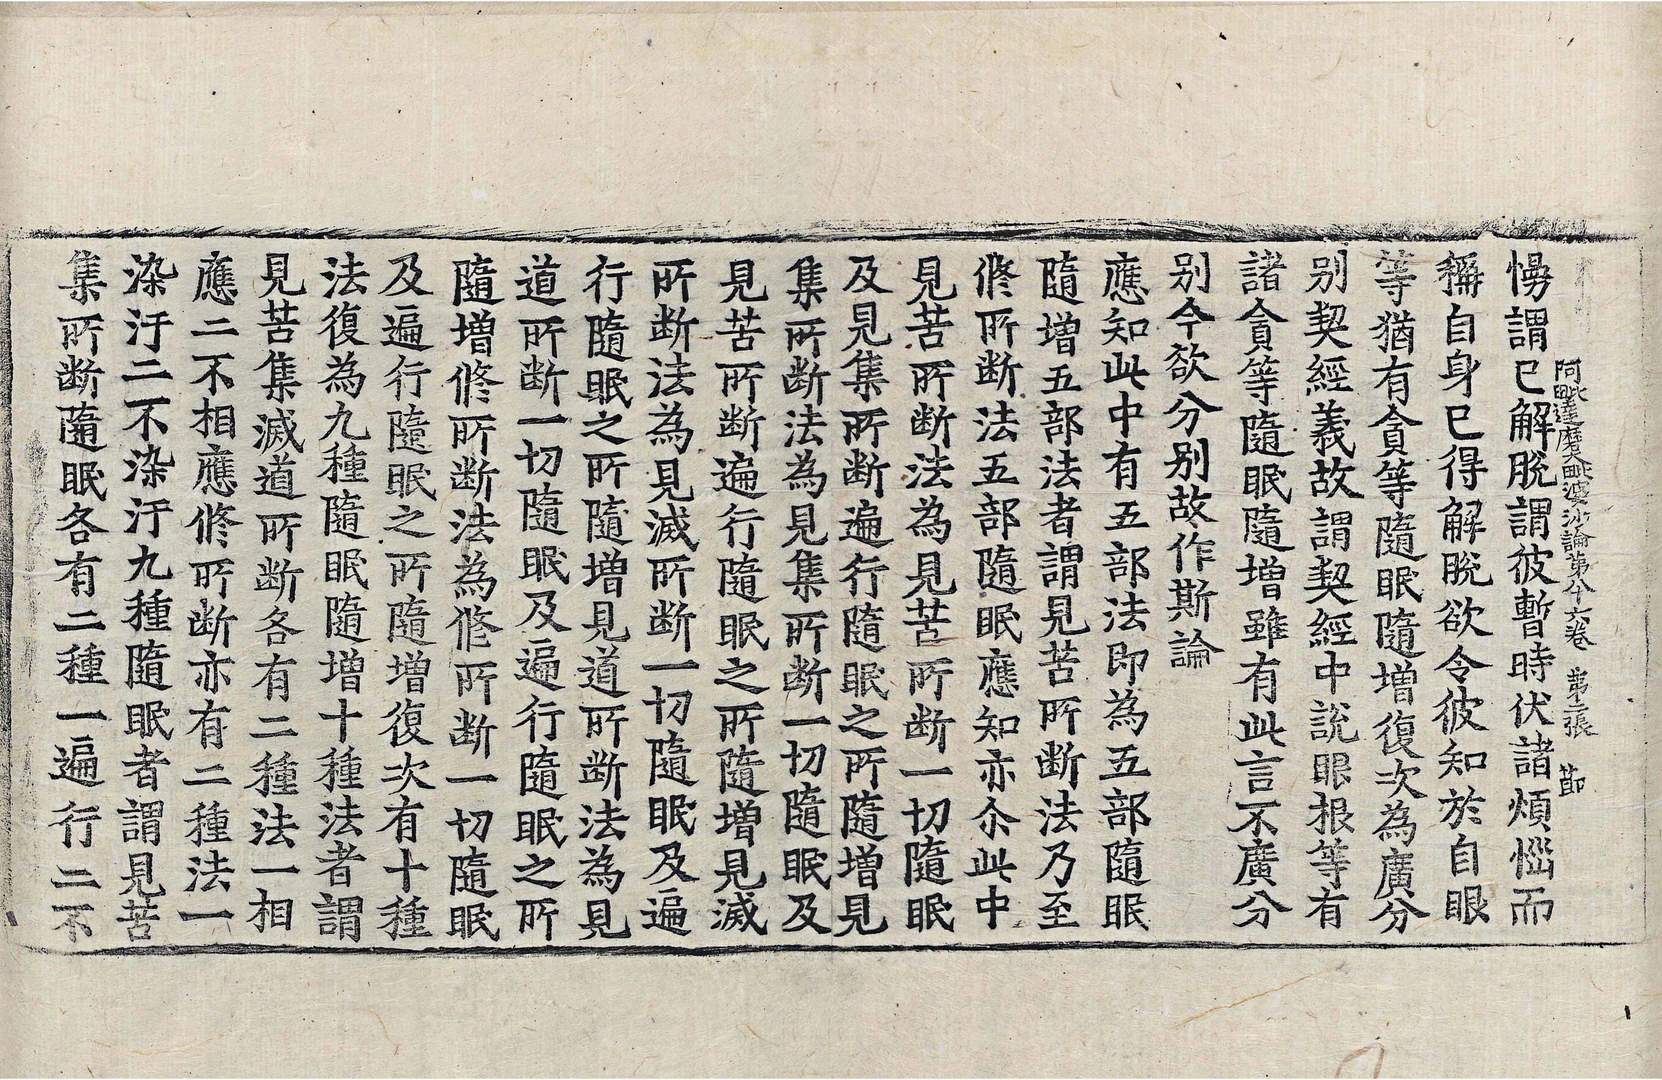 阿毗達磨大毗婆沙論第八十六卷 第二張 節
慢謂已解脫謂彼暫時伏諸煩惱而
稱自身已得解脫欲令彼知於自眼
等猶有貪等隨眠隨增復次為廣分
别契經義故謂契經中說眼根等有
諸貪等隨眠隨增雖有此言不廣分
别今欲分别故作斯論
應知此中有五部法即為五部隨眠
隨增五部法者謂見苦所断法乃至
修所断法五部隨眠應知亦尒此中
見苦所断法為見苦所断一切隨眠
及見集所断遍行隨眠之所隨增見
集所断法為見集所断一切隨眠及
見苦所断遍行隨眠之所隨增見滅
所断法為見滅所断一切隨眠及遍
行隨眠之所隨增見道所断法為見
道所断一切隨眠及遍行隨眠之所
隨增修所断法為修所断一切隨眠
及遍行隨眠之所隨增復次有十種
法復為九種隨眠隨增十種法者謂
見苦集滅道所断各有二種法一相
應二不相應修所断亦有二種法一
染汙二不染汙九種隨眠者謂見苦
集所断隨眠各有二種一遍行二不